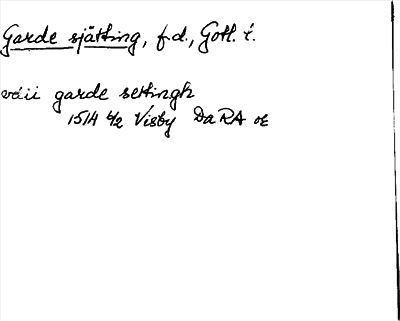 Garde sjätting, f.d., Gotl. l.
vdii garde settingh
1514 6/2 Visby DaRA oE